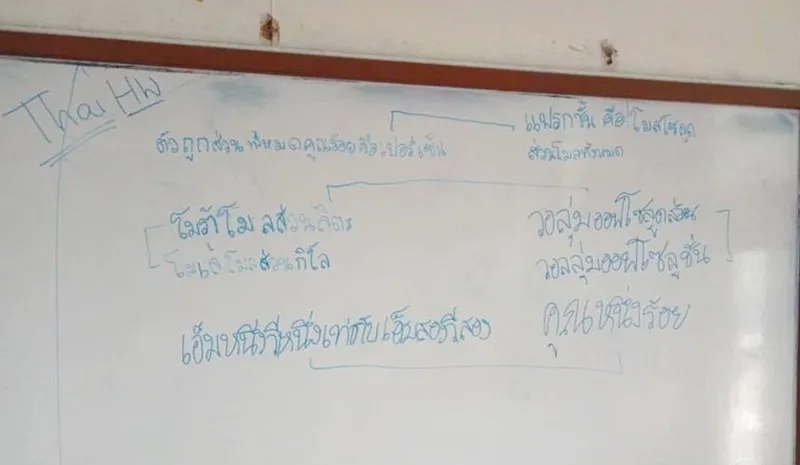 Thai HW
ตัวถูกส่วนทั้งหมดคูณร้อยคือเปอร์เซ็น
แฟรกชั้น คือ โมลโซลูด
ส่วนโมลทั้งหมด
โมร้าโมลส่วนลิตร
โมแล้โมลส่วนกิโล
วอลุ่มออฟโซลูดส่วน
วอลลุ่มออฟโซลูชั่น
เอ็มหนึ่งวีหนึ่งเท่ากับเอ็มสองวีสอง
คูณหนึ่งร้อย